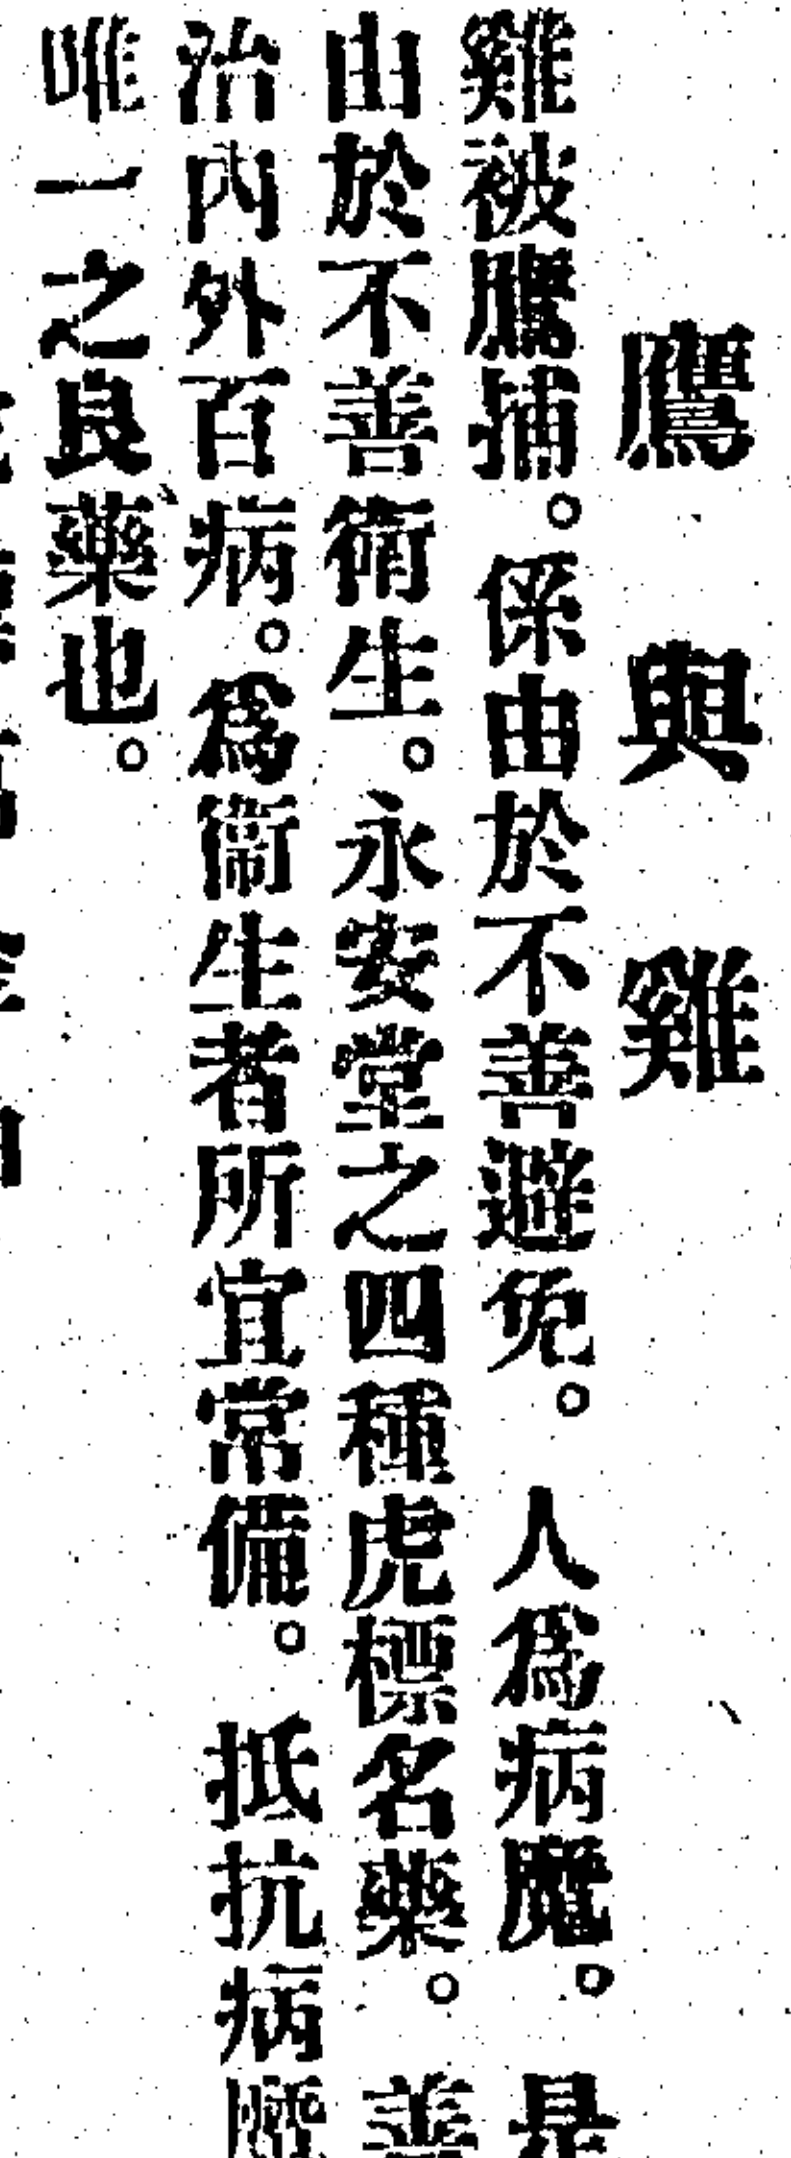 鷹與雞
雞被鷹捕。係由於不善避免。人為病魔。是
由於不善衛生。永安堂之四種虎標名藥。善
治內外百病。為衛生者所宜常備。抵抗病魔
唯一之良藥也。